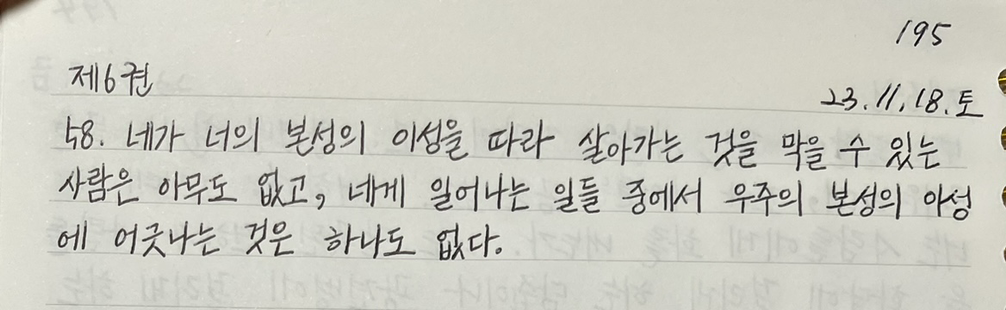 195
제6권
23.11.18.토
58. 네가 너의 본성의 이성을 따라 살아가는 것을 막을 수 있는
사람은 아무도 없고, 네게 일어나는 일들 중에서 우주의 본성의 이성
에 어긋나는 것은 하나도 없다.